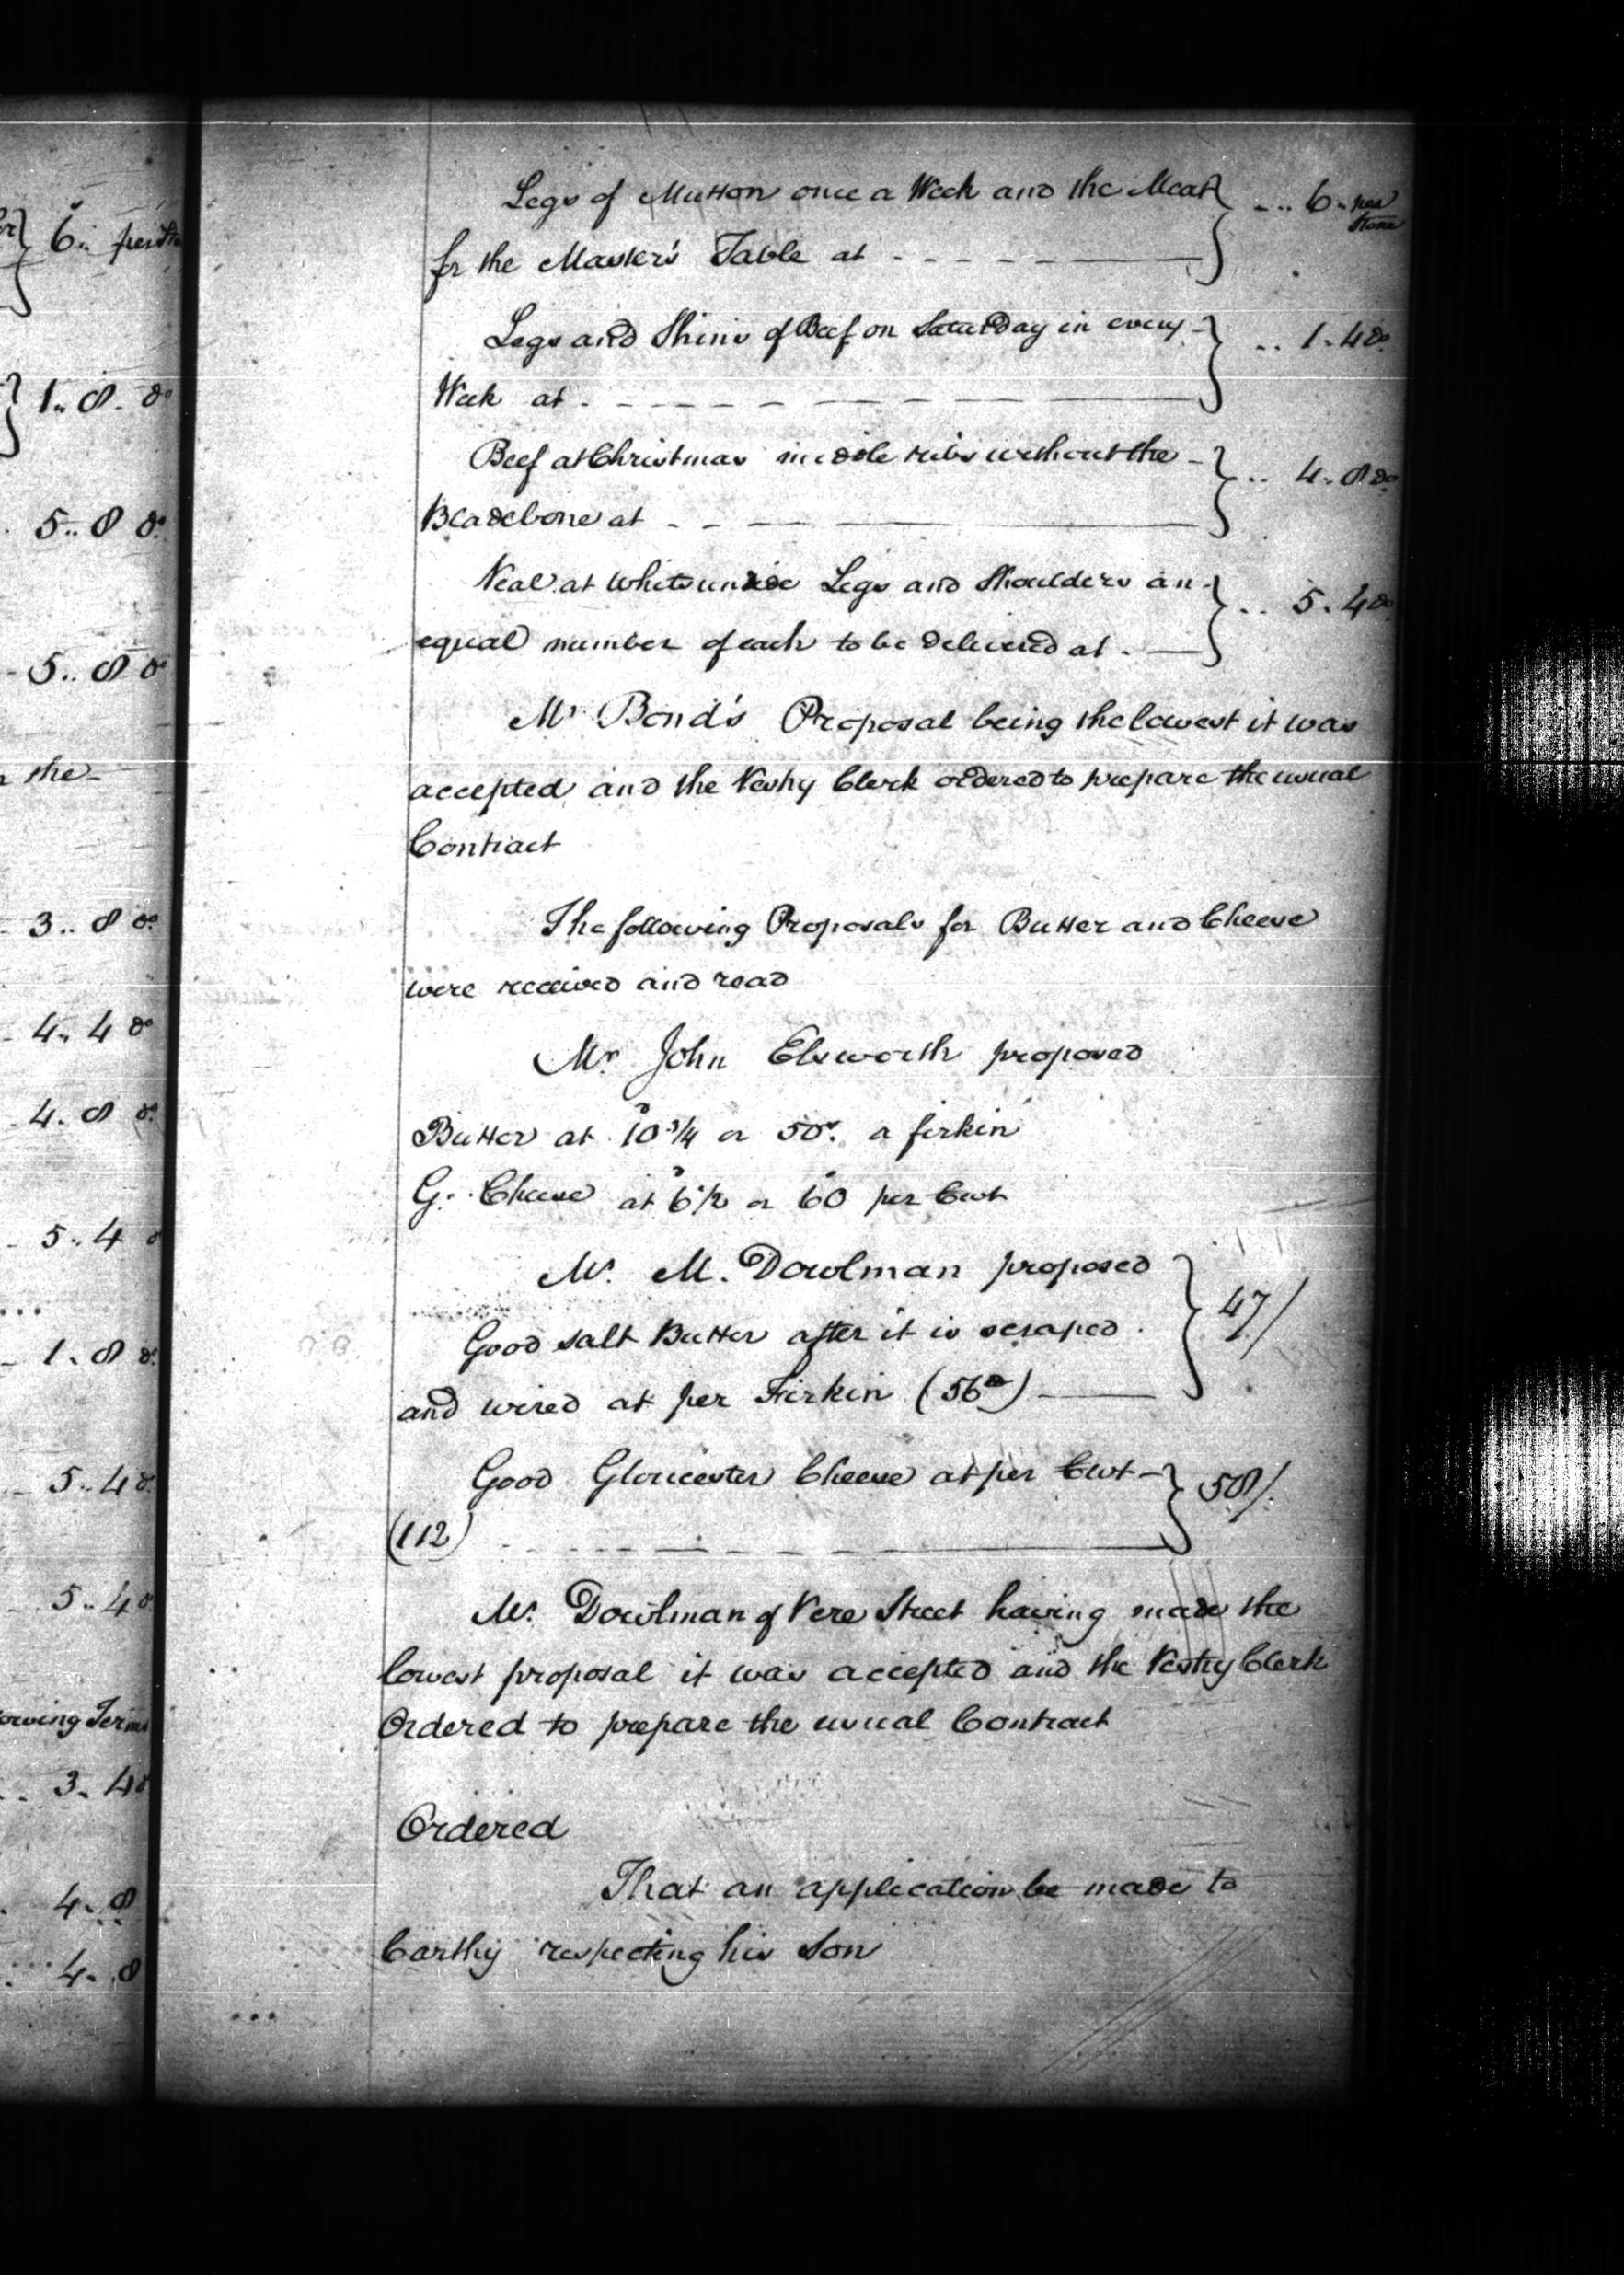 r} 6.. per Sto
} 1.. 8. do
5.. 8 do
5.. 8 do
the
3.. 8 do
4.. 4 do
4. 8 do
5.. 4
1. 8 do
5.. 4 do
5.. 4 do
owing Terms
3. 4 do
4. 8
4. 8
Legs of Mutton once a Week and the Meat } ... 6.. per Stone
for the Master's Table at
Legs and Shins of Beef on Saturday in every } .. 1. 4 do
Week at
Beef at Christmas middle ribs without the } .. 4.. 8 do
Bladebone at
Veal at Whitsuntide Legs and Shoulders an } .. 5. 4 do
equal number of each to be delivered at
Mr Bond's Proposal being the lowest it was
accepted and the Vestry Clerk ordered to prepare the usual
Contract
The following Proposals for Butter and Cheese
were received and read
Mr. John Elsworth proposed
Butter at 10d 3/4 or 50s. a firkin
G. Cheese at 6d 1/2 or 60s per Cwt
Mr. M. Dowlman proposed
Good salt Butter after it is scraped } 47/
and wired at per Firkin (56lb)
Good Gloucester Cheese at per Cwt } 58/
(112)
Mr. Dowlman of Vere Street having made the
lowest proposal it was accepted and the Vestry Clerk
Ordered to prepare the usual Contract
Ordered
That an application be made to
Carthy respecting his Son